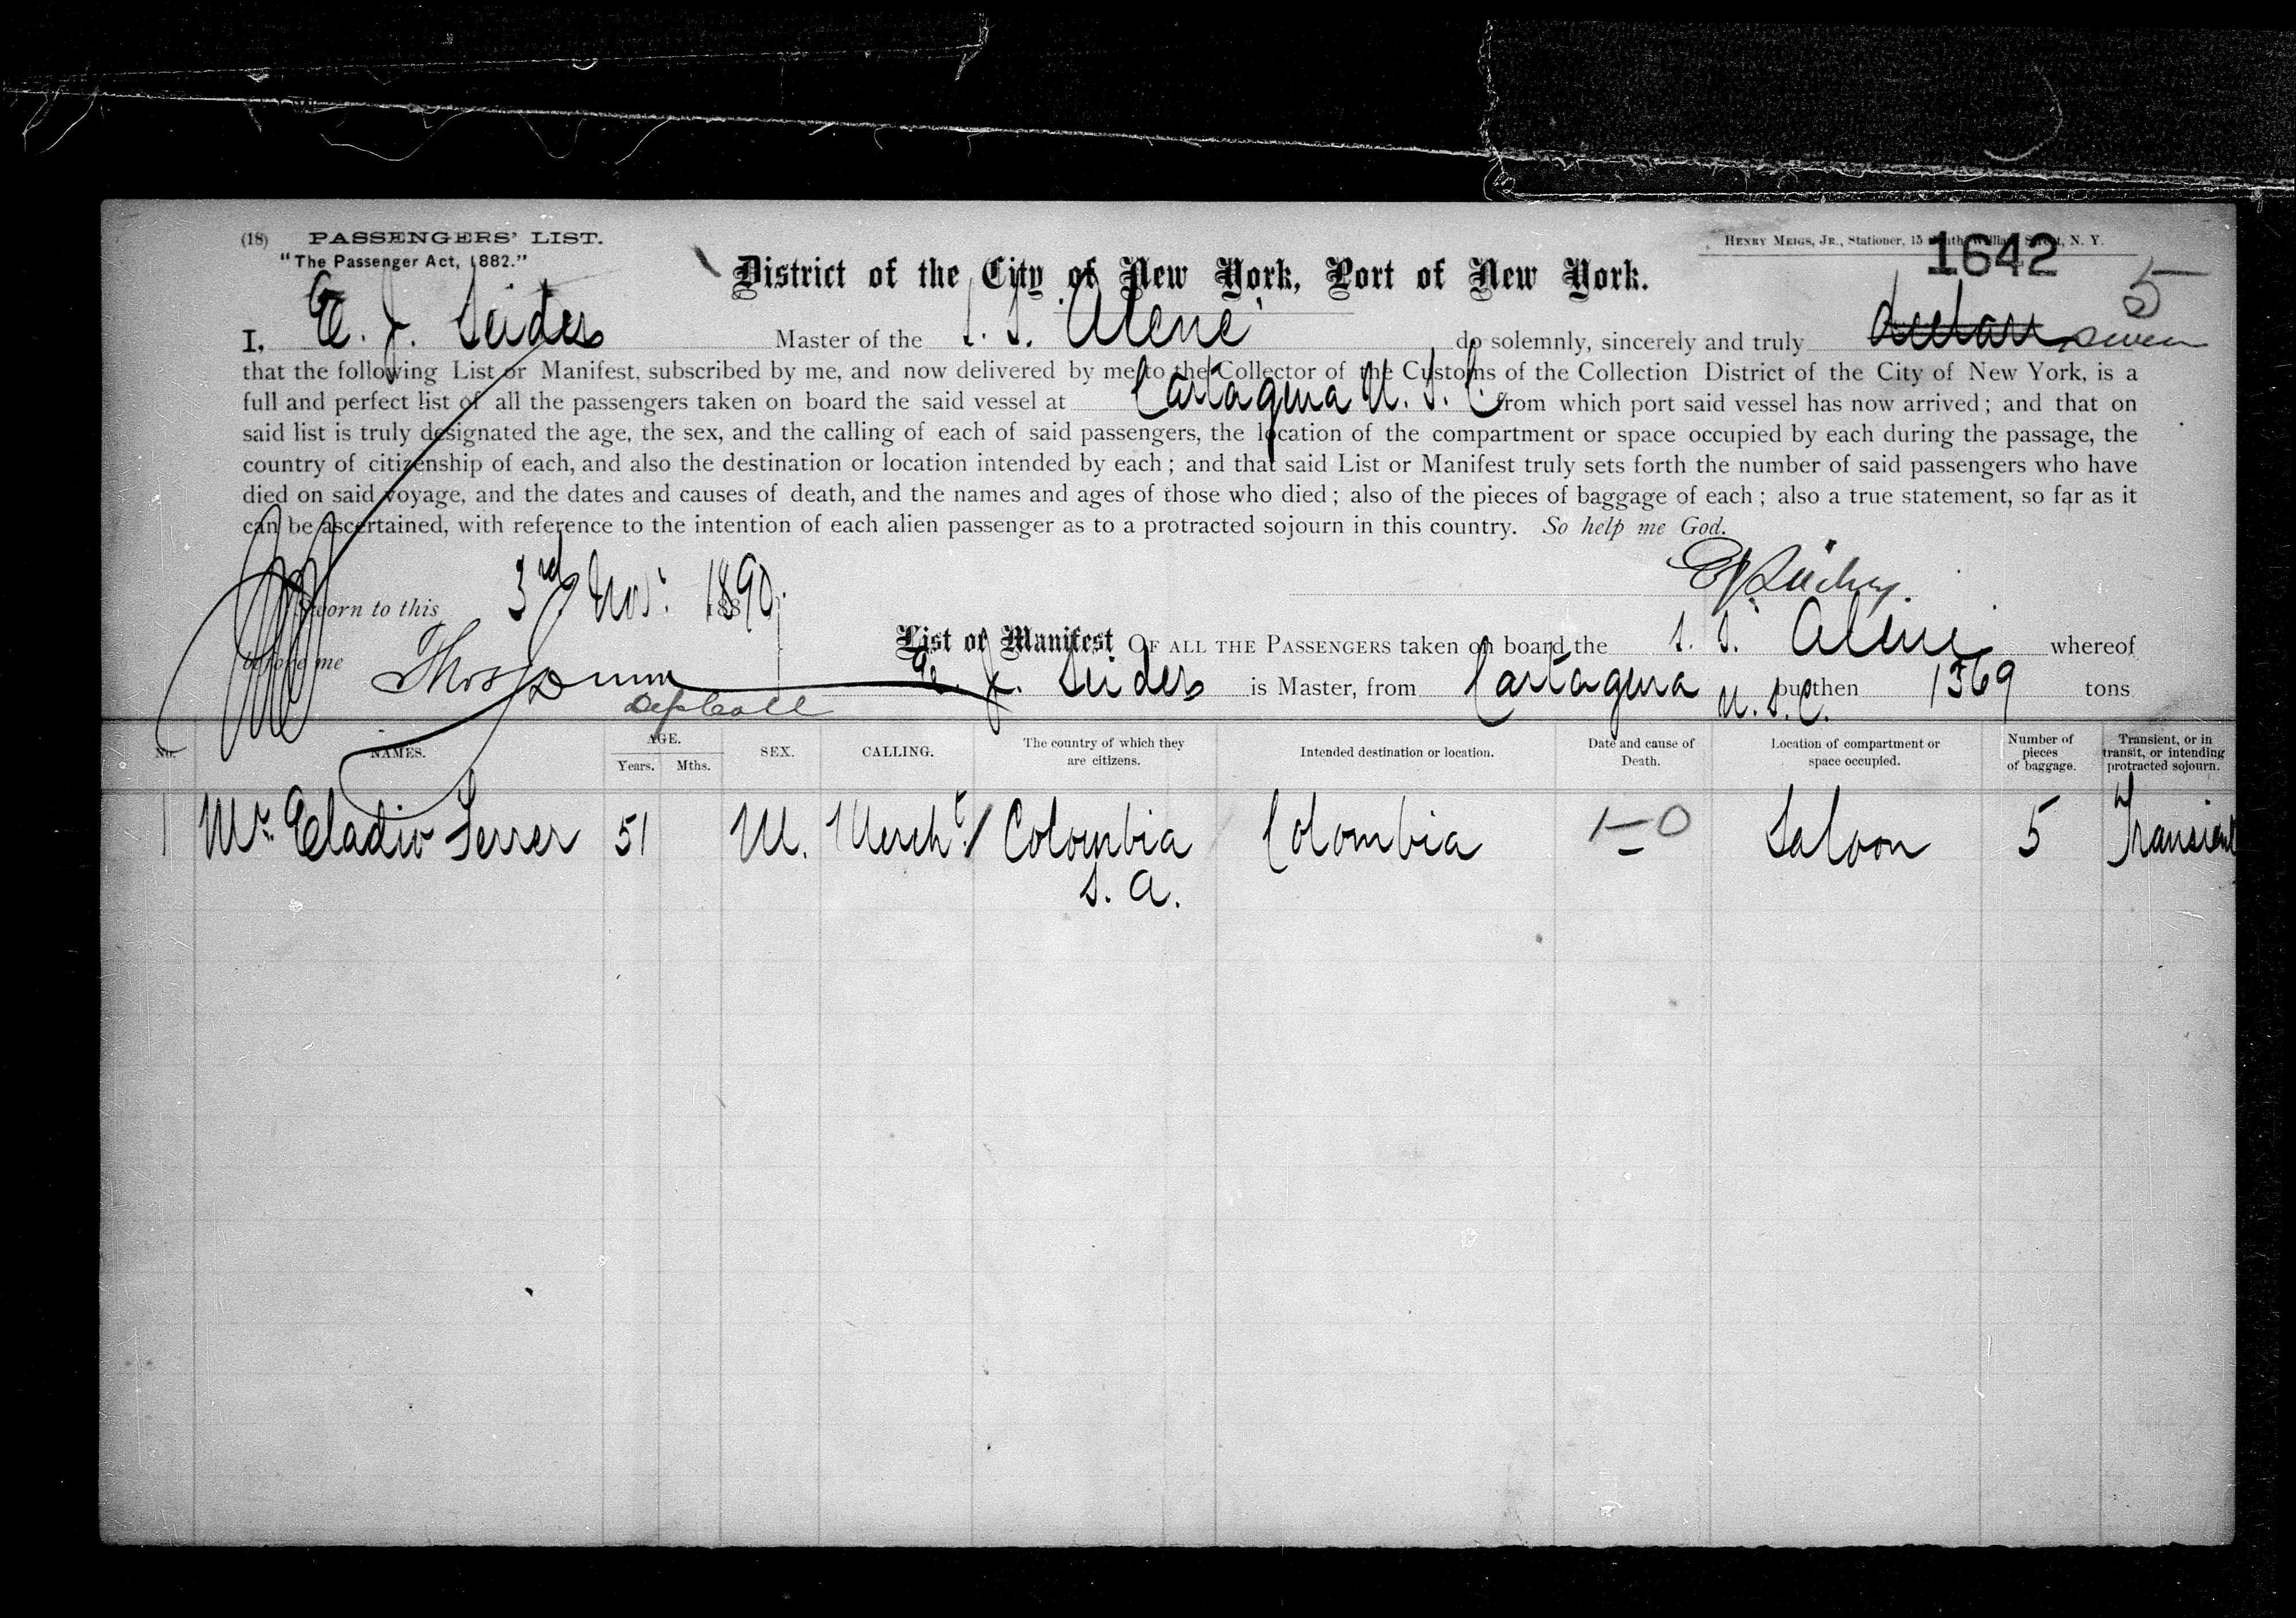 (18) PASSENGERS' LIST.
"The Passenger Act, 1882."
HENRY MEIGS, JR., Stationer, 15 William Street, N. Y.
1642
5
District of the City of New York, Port of New York.
I, E. J. Seiders Master of the S. S. "Alene" do solemnly, sincerely and truly declare swear
that the following List or Manifest, subscribed by me, and now delivered by me to the Collector of the Customs of the Collection District of the City of New York, is a
full and perfect list of all the passengers taken on board the said vessel at Cartagena U. S. C. from which port said vessel has now arrived; and that on
said list is truly designated the age, the sex, and the calling of each of said passengers, the location of the compartment or space occupied by each during the passage, the
country of citizenship of each, and also the destination or location intended by each; and that said List or Manifest truly sets forth the number of said passengers who have
died on said voyage, and the dates and causes of death, and the names and ages of those who died; also of the pieces of baggage of each; also a true statement, so far as it
can be ascertained, with reference to the intention of each alien passenger as to a protracted sojourn in this country. So help me God.
Sworn to this 3rd Nov. 1890
before me Thos
Dep Coll
List or Manifest OF ALL THE PASSENGERS taken on board the S. S. Alene whereof
E. J. Seiders is Master, from Cartagena U. S. C. burthen 1369 tons
No. NAMES. AGE. Years. Mths. SEX. CALLING. The country of which they are citizens. Intended destination or location. Date and cause of Death. Location of compartment or space occupied. Number of pieces of baggage. Transient, or in transit, or intending protracted sojourn.
1 Mr. Eladio Ferrer 51 M. Merch't Colombia Colombia 1–0 Saloon 5 Transient
S. A.